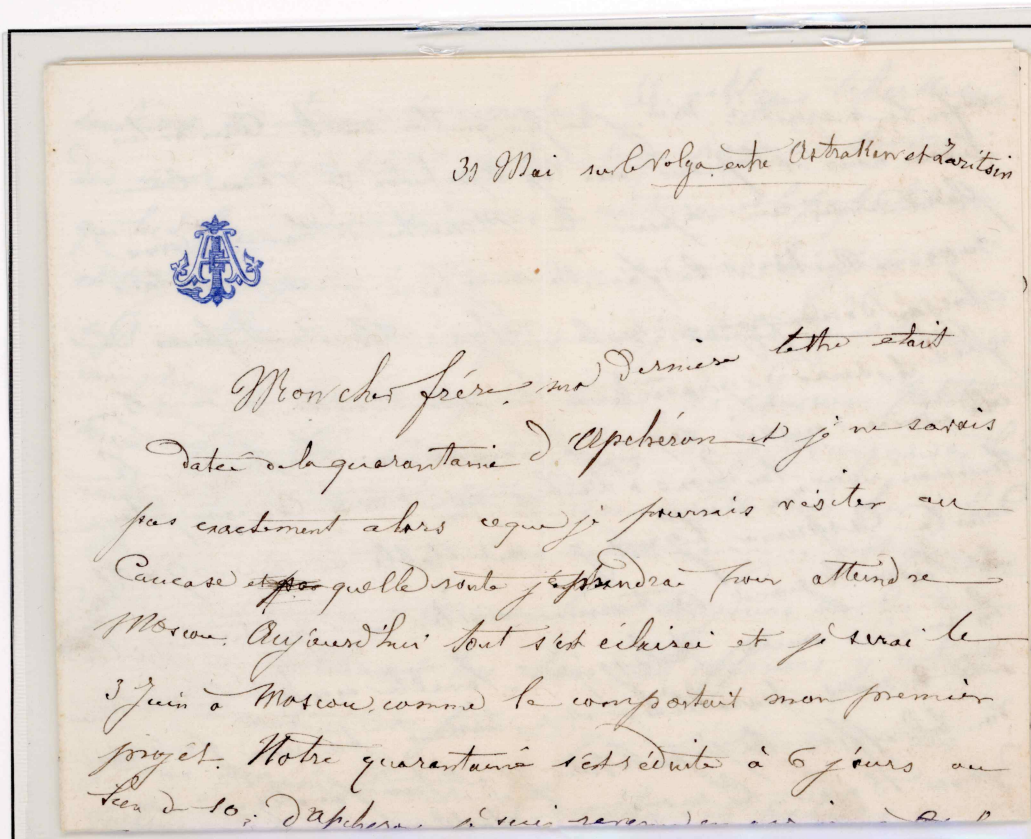 31 Mai sur le Volga entre Astrakan et Zaritsin
Mon cher frère, ma dernière lettre était
datée de la quarantaine d'Apchéron et je ne savais
pas exactement alors ce que je pourrais visiter au
Caucase et quelle route je prendrai pour atteindre
Moscou. Aujourd'hui tout s'est éclairci et je serai le
3 Juin à Moscou comme le comportait mon premier
projet. Notre quarantaine s'est réduite à 6 jours au
lieu de 10. d'Apcheron je suis